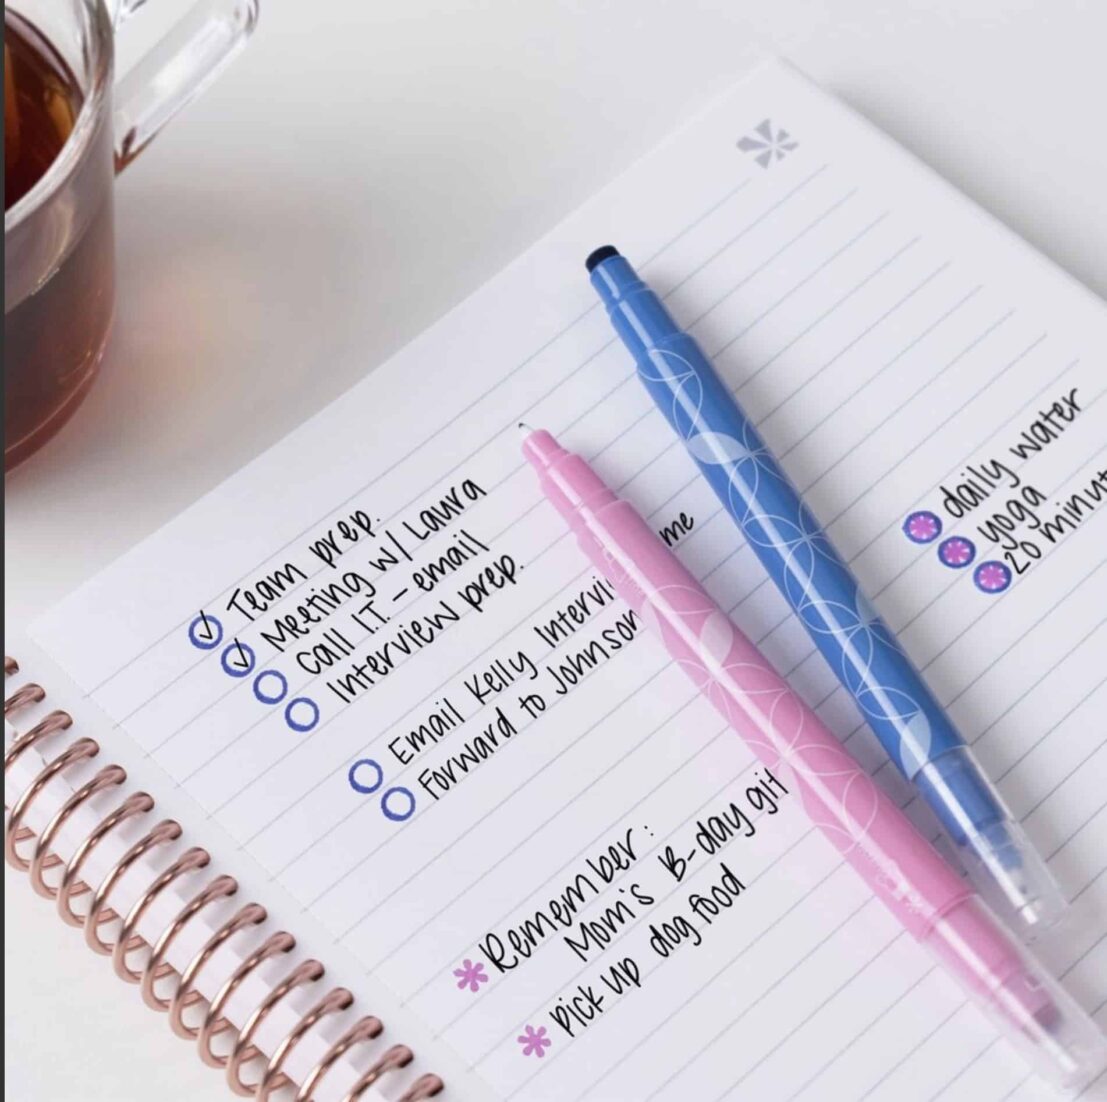 Team prep.
Meeting w/ Laura
Call IT - email
Interview prep.
me
Email Kelly
Forward to Johnson
Remember:
Mom's B-day
Pick up dog food
daily water
yoga
20